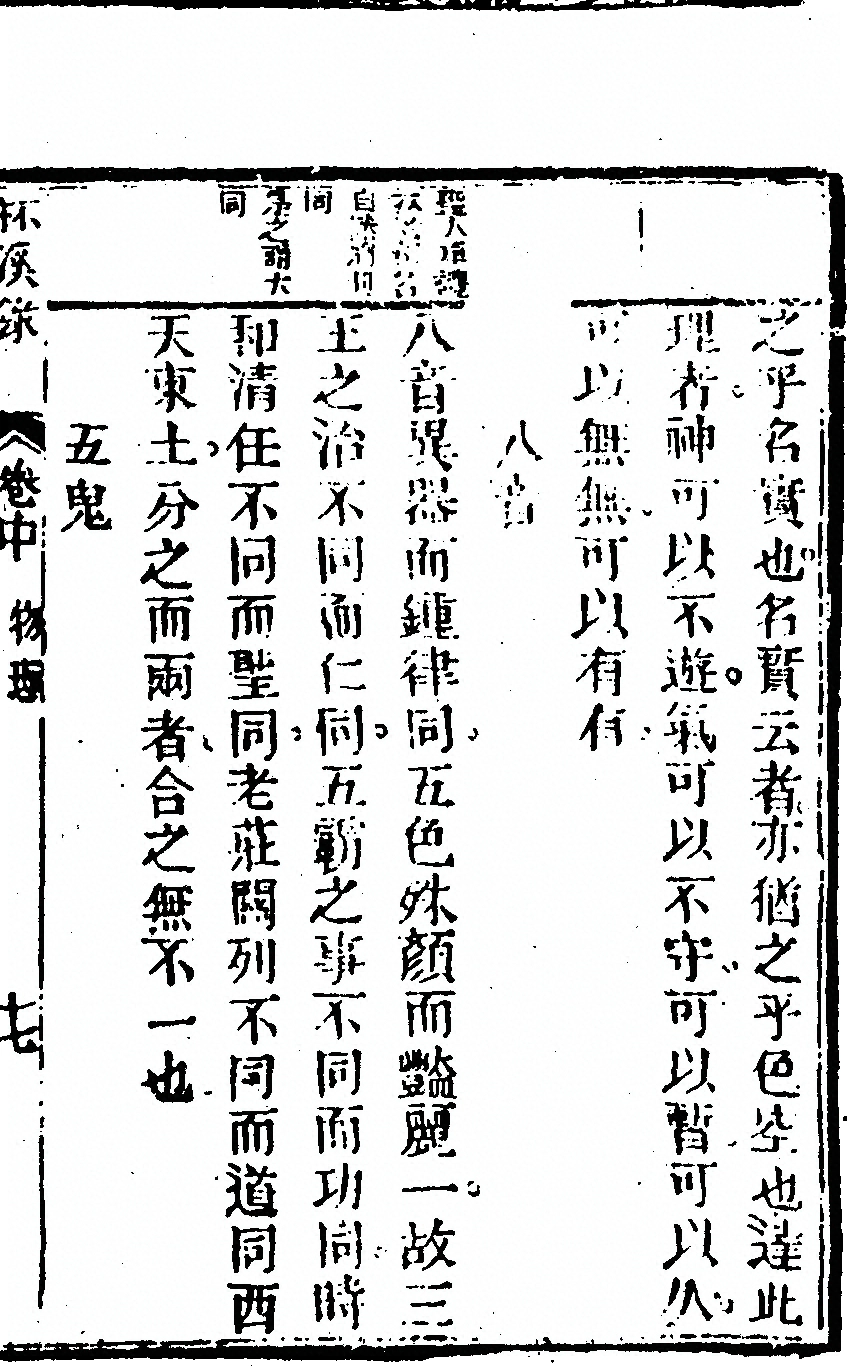 之乎名實也名實云者亦猶之乎色空也達此
理者神可以不遊氣可以不守可以暫可以久
可以無無可以有有
八音
八音異器而鍾律同五色殊顏而豔麗一故三
王之治不同而仁同五霸之事不同而功同時
和清任不同而聖同老莊關列不同而道同西
天東土分之而兩者合之無不一也
五鬼
聖人
同
是之謂大
同
杯溪錄
卷中 物理
七